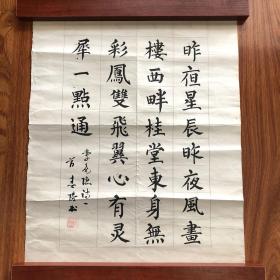 昨夜星辰昨夜風畫
樓西畔桂堂東身無
彩鳳雙飛翼心有灵
犀一點通
李商隱詩一